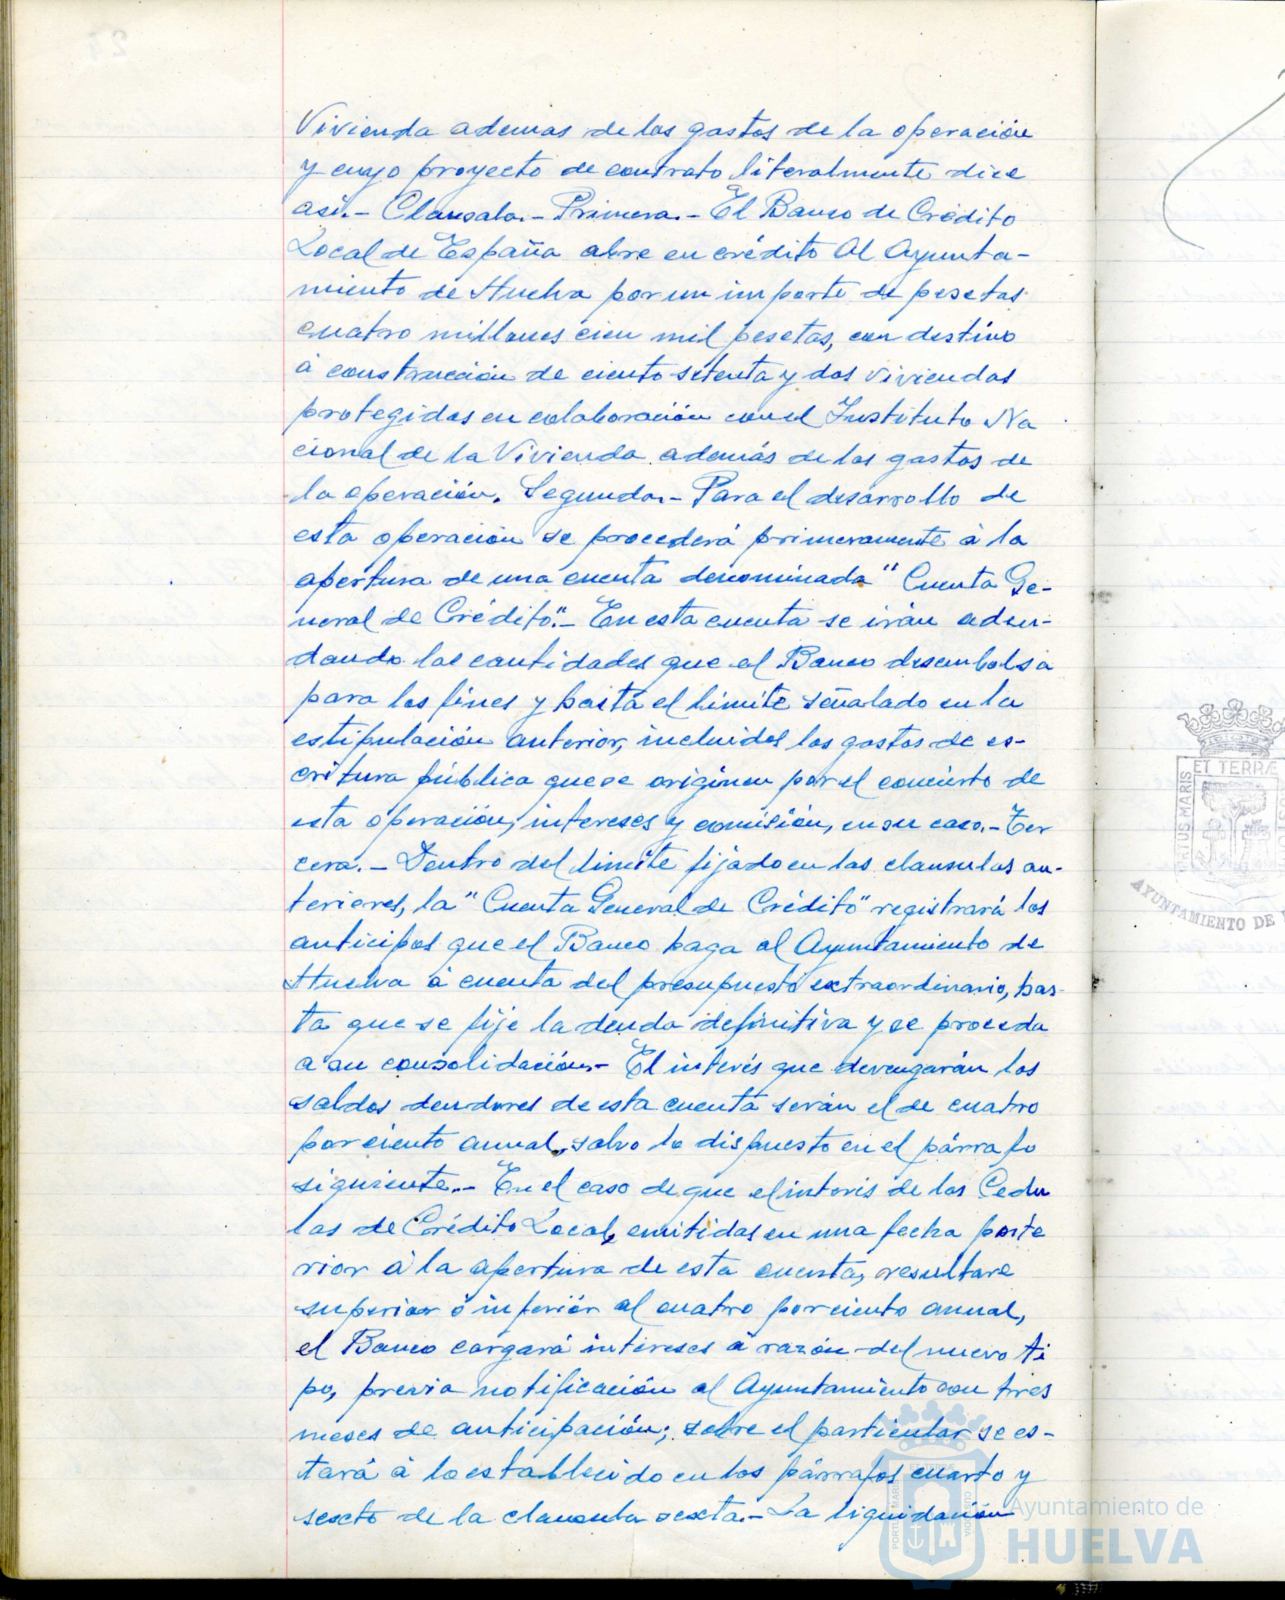 Vivienda ademas de los gastos de la operación
y cuyo proyecto de contrato literalmente dice
asi.- Clausula.- Primera.- El Banco de Crédito
Local de España abre en crédito al Ayunta-
miento de Huelva por un importe de pesetas
cuatro millones cien mil pesetas, con destino
á construcción de ciento setenta y dos viviendas
protegidas en colaboración con el Instituto Na
cional de la Vivienda además de los gastos de
la operación. Segunda.- Para el desarrollo de
esta operación se procederá primeramente á la
apertura de una cuenta denominada "Cuenta Ge-
neral de Crédito".- En esta cuenta se irán adeu-
dando las cantidades que el Banco desembolsa
para los fines y hasta el limite señalado en la
estipulación anterior, incluidos los gastos de es-
critura pública que se originen por el concierto de
esta operación, intereses y comisión, en su caso.- Ter
cera.- Dentro del limite fijado en las clausulas an-
teriores, la "Cuenta General de Crédito" registrará los
anticipos que el Banco haga al Ayuntamiento de
Huelva á cuenta del presupuesto extraordinario, has-
ta que se fije la deuda definitiva y se proceda
a su consolidación.- El interés que devengarán los
saldos deudores de esta cuenta serán el de cuatro
por ciento anual, salvo lo dispuesto en el párrafo
siguiente.- En el caso de que el interis de las Cedu
las de Crédito Local, emitidas en una fecha poste
rior á la apertura de esta cuenta, resultare
superior ó inferiór al cuatro por ciento anual,
el Banco cargará intereses á razón del nuevo ti
po, previa notificación al Ayuntamiento con tres
meses de anticipación; sobre el particular se es-
tará á lo establecido en los párrafos cuarto y
sexto de la clausula sexta.- La liquidación
ET TERRÆ
AYUNTAMIENTO DE
Ayuntamiento de
HUELVA